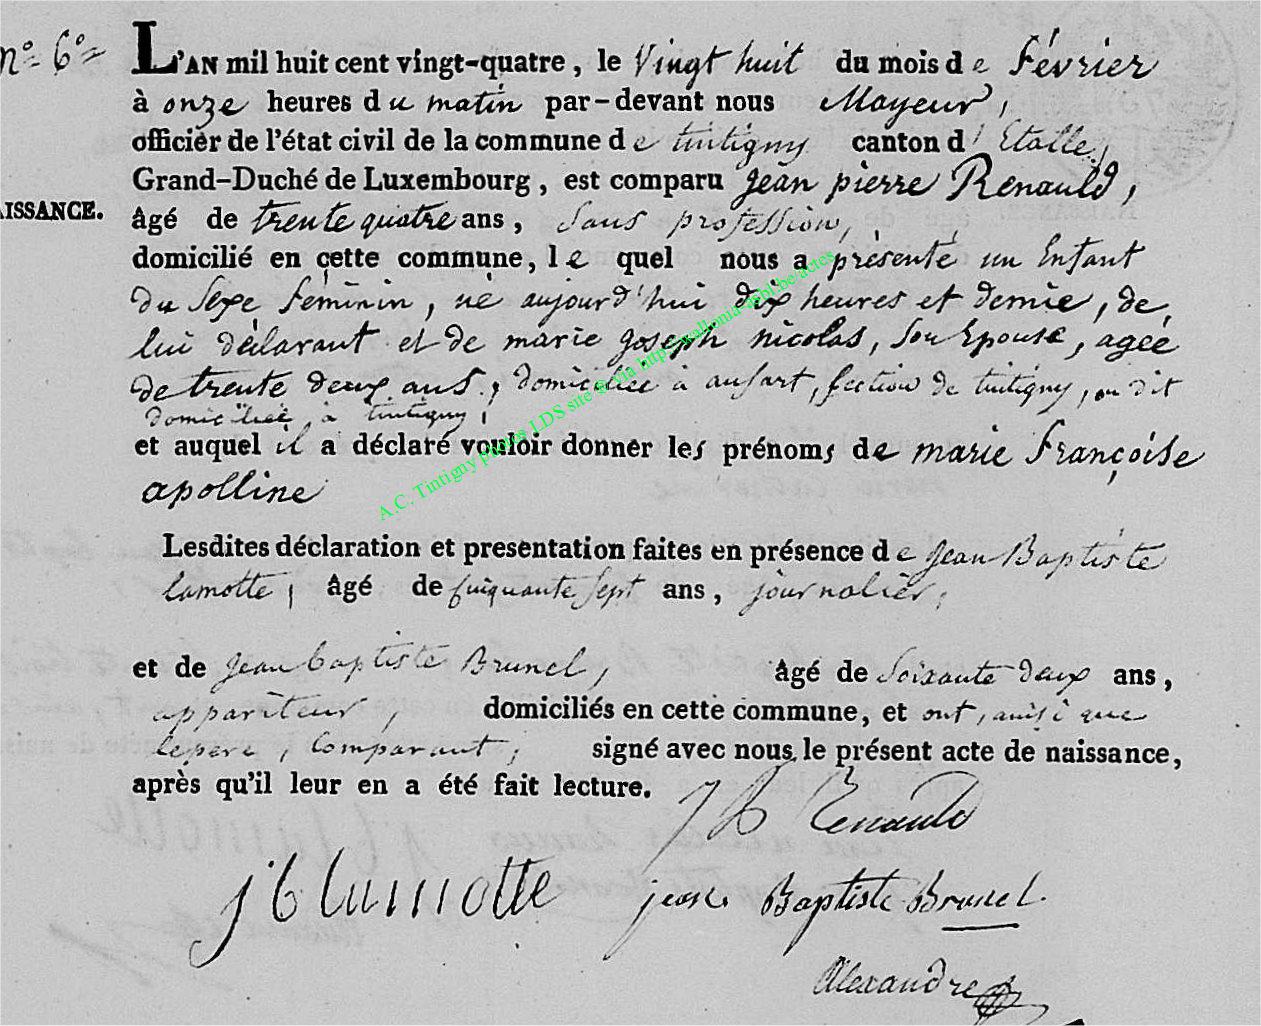 n° 6°
L'AN mil huit cent vingt-quatre, le Vingt huit du mois de février
à onze heures du matin par-devant nous Mayeur,
officier de l'état civil de la commune de tintigny canton d'Etalle,
Grand-Duché de Luxembourg, est comparu jean pierre Renauld,
AISSANCE.
âgé de trente quatre ans, Sans profession,
domicilié en cette commune, le quel nous a présenté un Enfant
du Sexe féminin, né aujourd'hui dix heures et demie, de
lui déclarant et de marie joseph nicolas, Son Epouse, agée
de trente deux ans, domiciliée à ansart, section de tintigny, on dit
domiciliée à tintigny,
et auquel il a déclaré vouloir donner les prénoms de marie Françoise
apolline
Lesdites déclaration et presentation faites en présence de jean Baptiste
lamotte, âgé de cinquante sept ans, journalier,
et de jean baptiste Brunel, âgé de Soixante deux ans,
appariteur, domiciliés en cette commune, et ont, ainsi que
le pere, Comparant, signé avec nous, le présent acte de naissance,
après qu'il leur en a été fait lecture.
Renauld
j b lamotte
jean Baptiste Brunel
Alexandre
A.C. Tintigny photos LDS site et via http://wallonia-asbl.be/actes